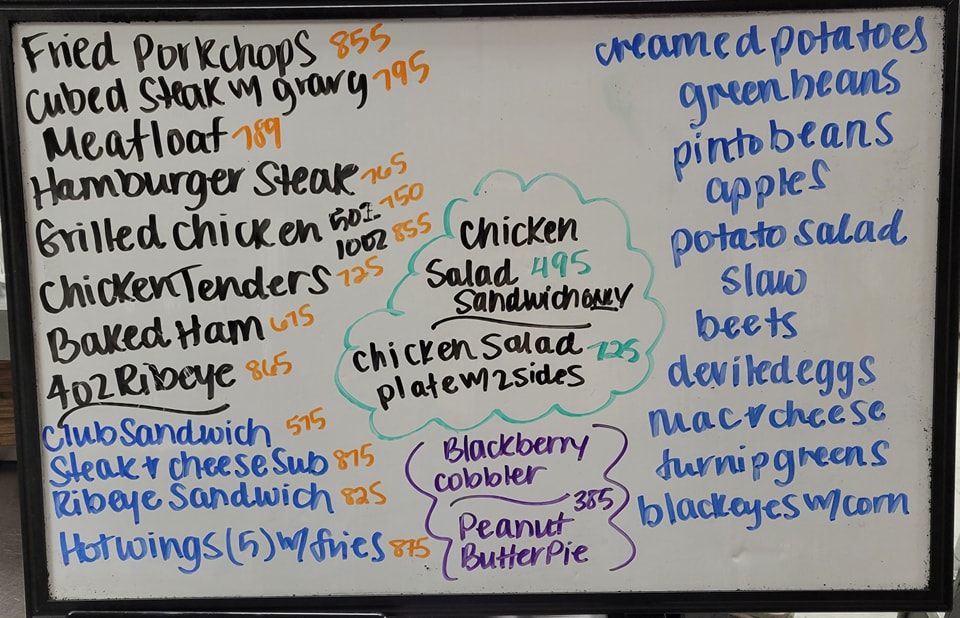 Fried Porkchops 855
Cubed Steak w/ gravy 795
Meatloaf 789
Hamburger Steak 765
Grilled chicken 5oz 750
10oz 855
Chicken Tenders 725
Baked Ham 675
4oz Ribeye 865
Club Sandwich 575
Steak & cheese Sub 875
Ribeye Sandwich 825
Hotwings (5) w/ fries 875
Chicken
Salad 495
Sandwich only
chicken salad 725
plate w/ 2 sides
Blackberry
cobbler
385
Peanut
Butter Pie
creamed potatoes
green beans
pinto beans
apples
potato salad
slaw
beets
deviled eggs
mac & cheese
turnip greens
blackeyes w/ corn